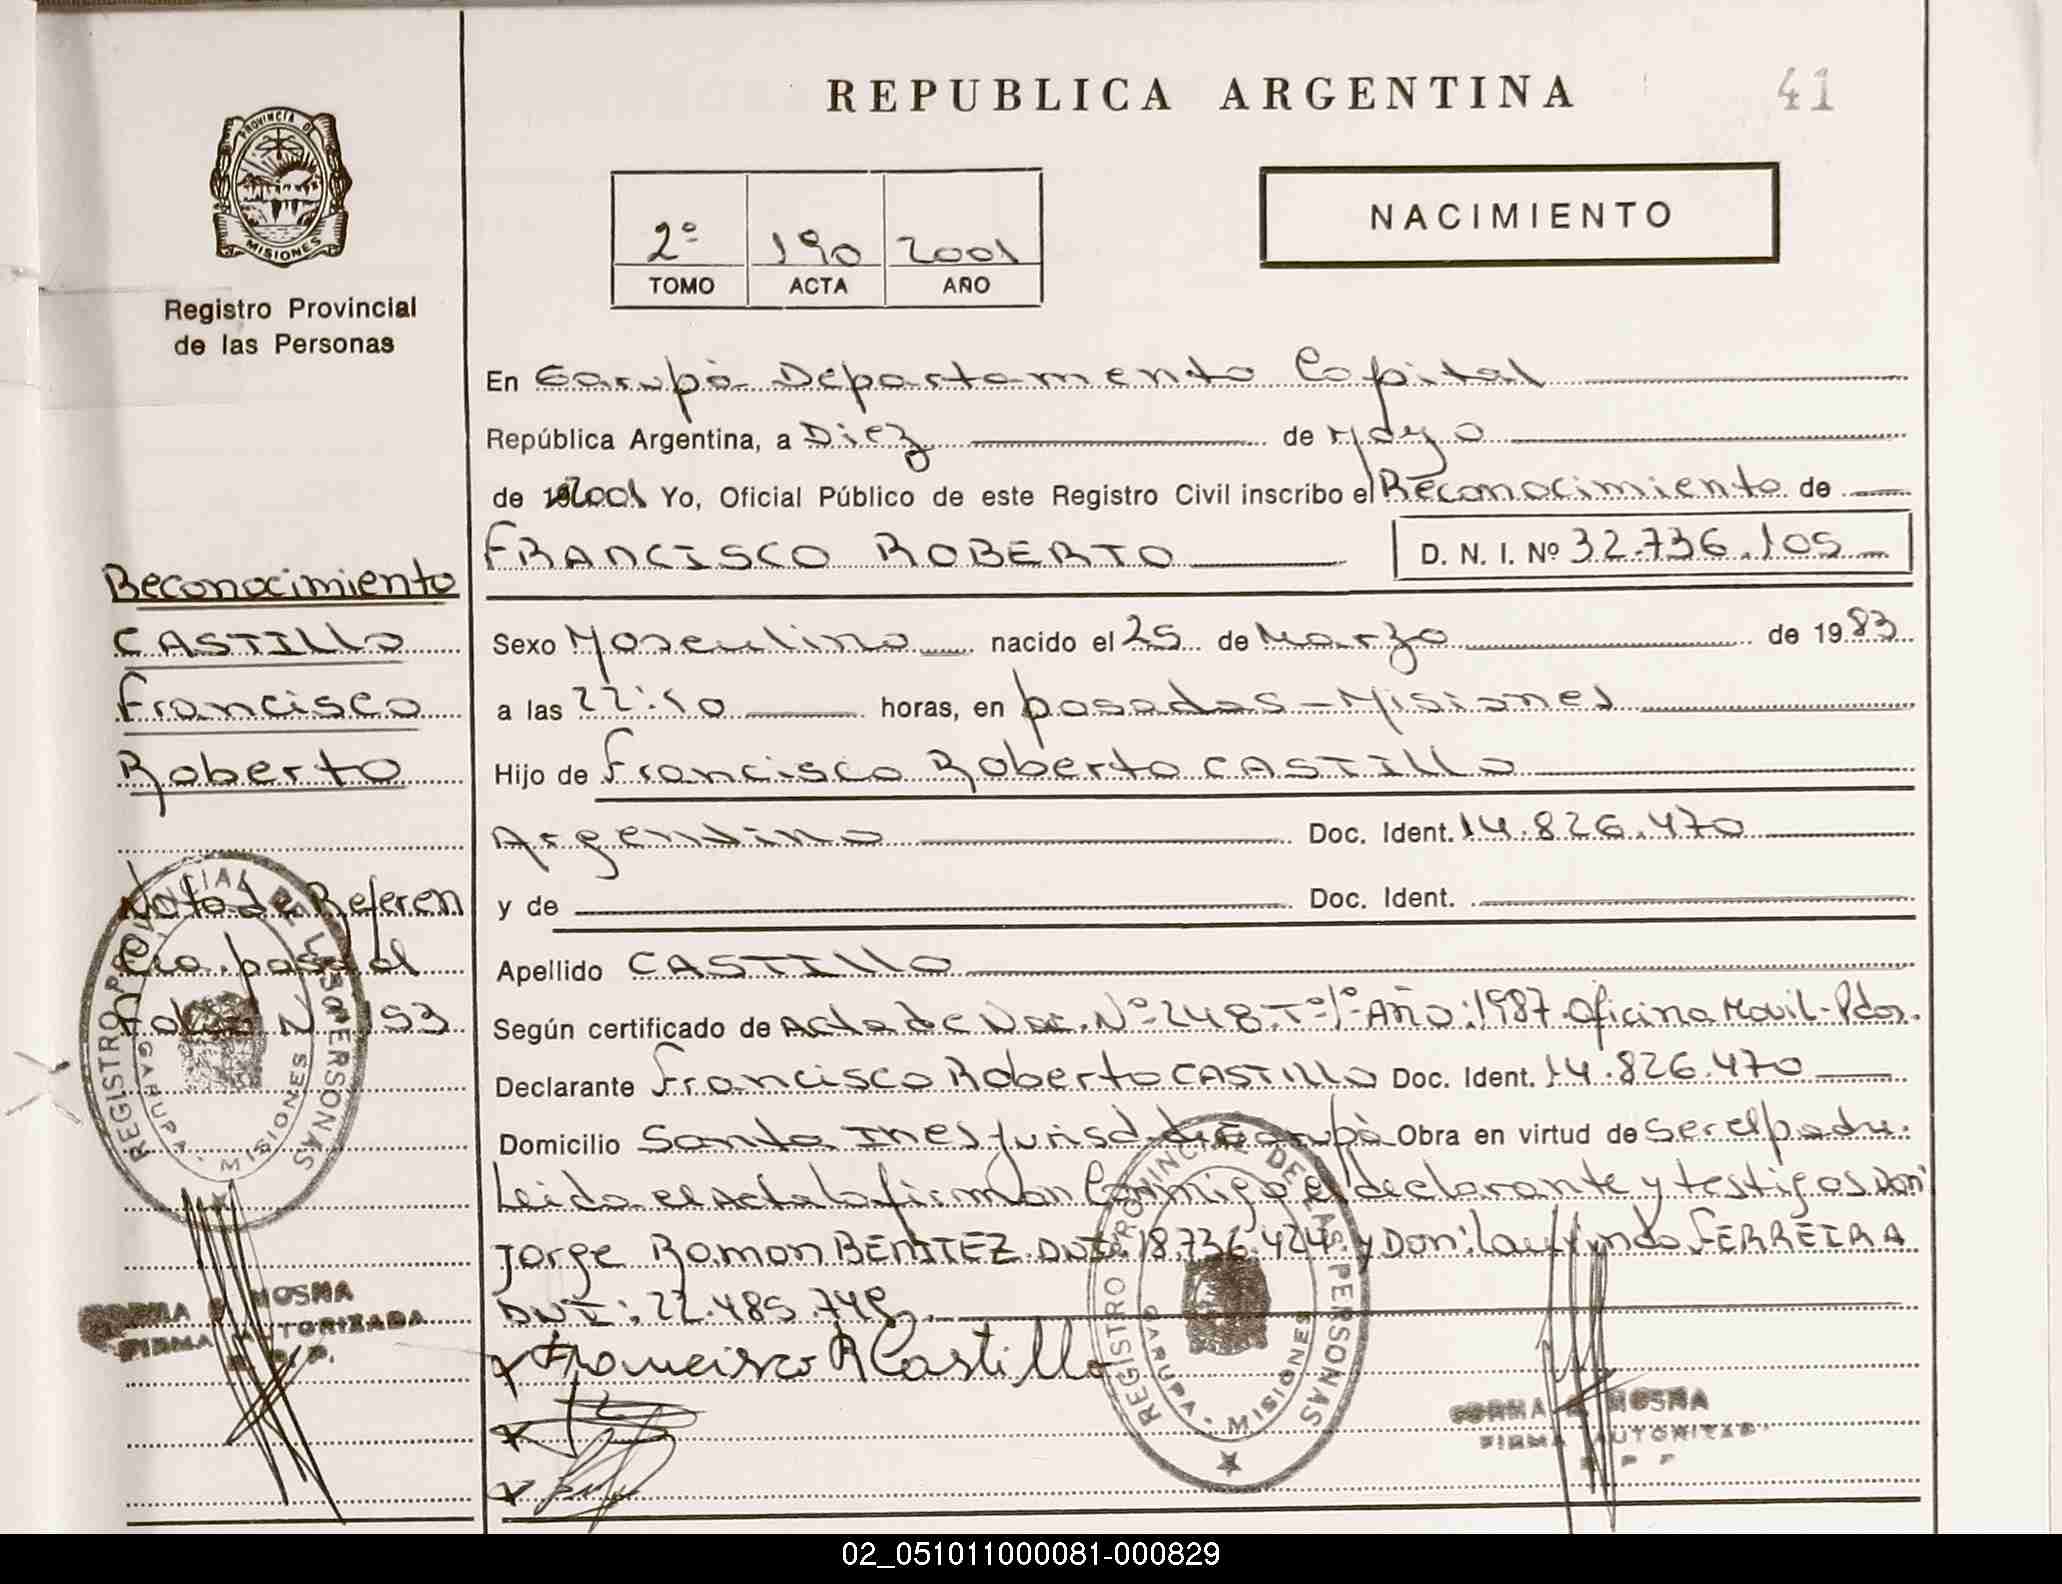 REPUBLICA ARGENTINA
41
PROVINCIA DE
MISIONES
Registro Provincial
de las Personas
2º 190 2001
TOMO ACTA AÑO
NACIMIENTO
En Garupá Departamento Capital
República Argentina, a Diez de Mayo
de 2001 Yo, Oficial Público de este Registro Civil inscribo el Reconocimiento de
FRANCISCO ROBERTO
D. N. I. Nº 32.736.105
Sexo Masculino nacido el 25 de Marzo de 1983
a las 22:10 horas, en posadas - Misiones
Hijo de Francisco Roberto CASTILLO
Argentino Doc. Ident. 14.826.470
y de Doc. Ident.
Apellido CASTILLO
Según certificado de Acta de Nac. Nº 248. Tº 1º Año: 1987. Oficina Movil - Pdas.
Declarante Francisco Roberto CASTILLO Doc. Ident. 14.826.470
Domicilio Santa Ines Jurisd. de Garupá Obra en virtud de ser el padre.
Leida el Acta la firman Conmigo el declarante y testigos Don:
Jorge Ramon BENITEZ DNI: 18.736.424 y Don: FERREIRA
DNI: 22.485.748
Francisco R Castillo
Reconocimiento
CASTILLO
Francisco
Roberto
Nota de Referen
cia pasa al
Folio Nº 193
REGISTRO PROVINCIAL DE LAS PERSONAS
GARUPA - MISIONES
MOSNA
FIRMA AUTORIZADA
R. P. P.
REGISTRO PROVINCIAL DE LAS PERSONAS
GARUPA - MISIONES
MOSNA
FIRMA
02_051011000081-000829